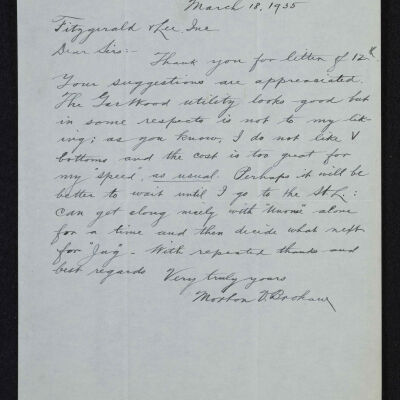 March 18, 1935
Fitzgerald & Lee Inc
Dear Sirs:-
Thank you for letter of 12th.
Your suggestions are appreaciated.
The GarWood utility looks good but
in some respects is not to my lik-
ing; as you know, I do not like V
bottoms and the cost is too great for
my "speed", as usual. Perhaps it will be
better to wait until I go to the St L:
can get along nicely with "" alone
for a time and then decide what next
for "Jag". - With repeated thanks and
best regards Very truly yours
Morton